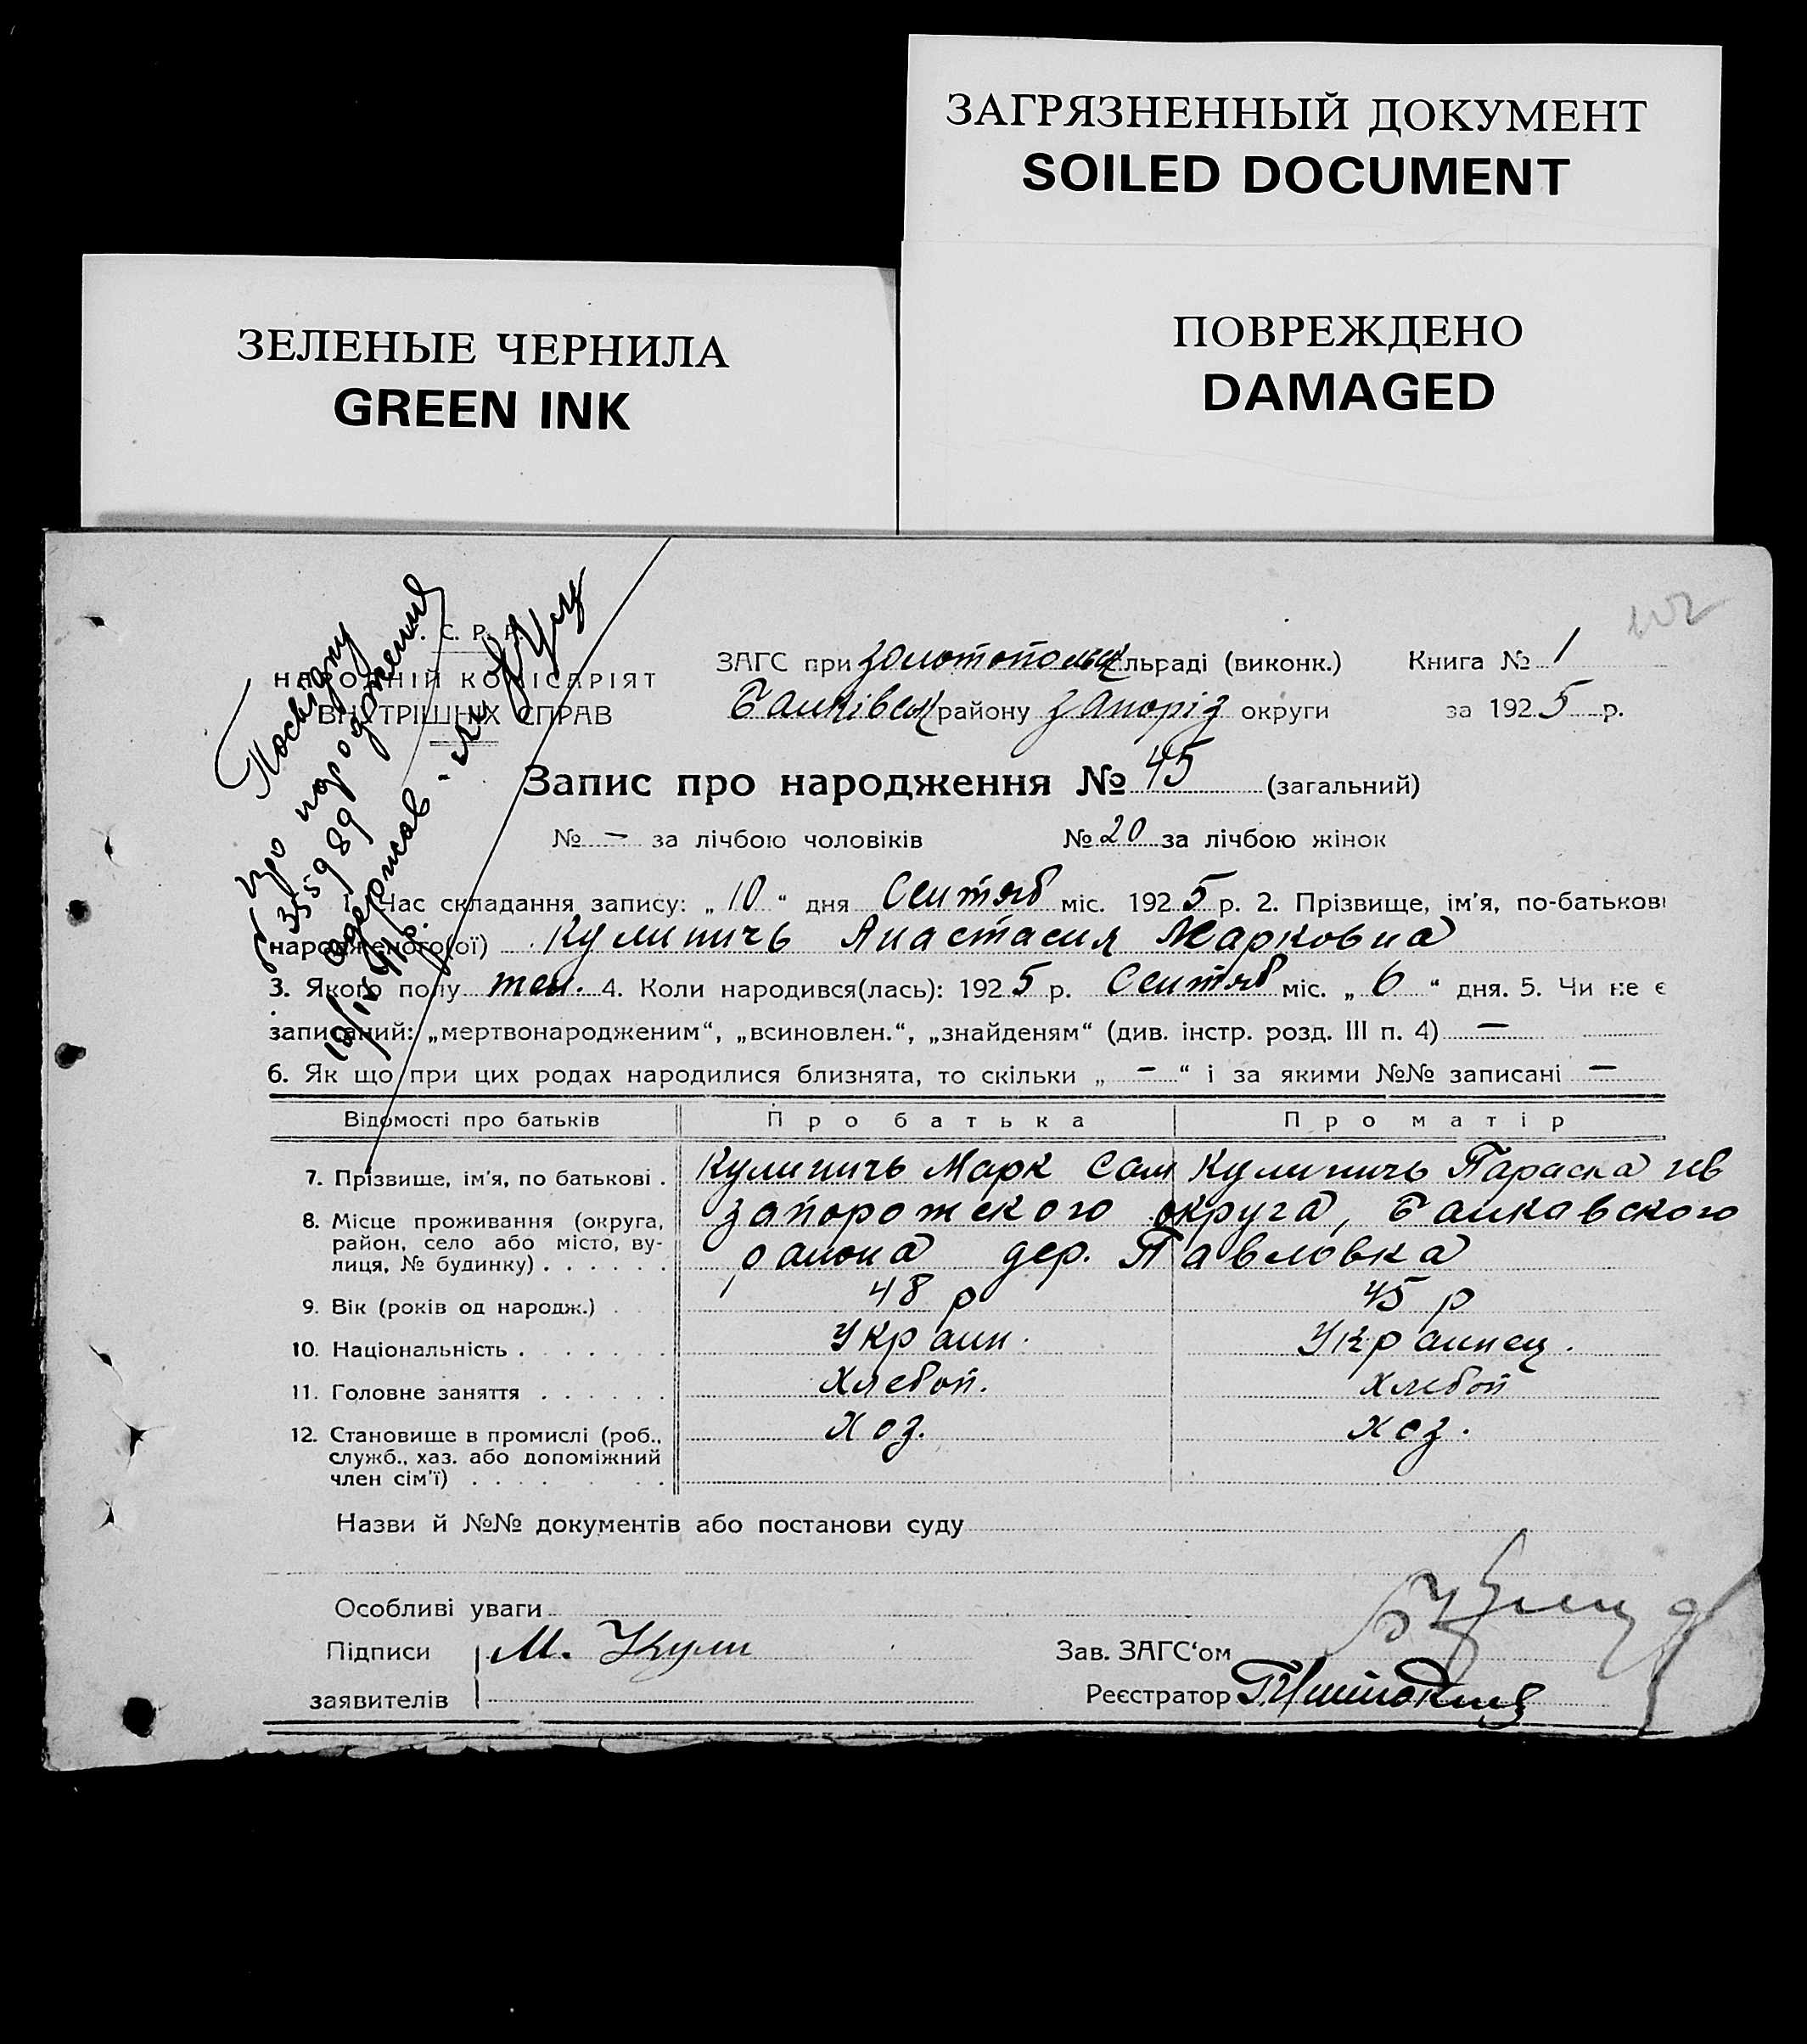 ЗАГРЯЗНЕННЫЙ ДОКУМЕНТ
SOILED DOCUMENT
ЗЕЛЕНЫЕ ЧЕРНИЛА
GREEN INK
ПОВРЕЖДЕНО
DAMAGED
С. Р. Р.
НАРОДНІЙ КОМІСАРІЯТ
ВНУТРІШНІХ СПРАВ
Посвідку
про народження
355989
одержав
ЗАГС при Золотопольск льраді (виконк.) Книга № 1
Балківськ району Запоріз округи за 1925 р.
Запис про народження № 45 (загальний)
№ — за лічбою чоловіків № 20 за лічбою жінок
Час складання запису: „10“ дня Сентяб міс. 1925 р. 2. Прізвище, ім'я, по-батькові
народженого(ої) Кулиничь Анастасия Марковна
3. Якого полу жен. 4. Коли народився(лась): 1925 р. Сентяб міс. „6“ дня. 5. Чи не є
записаний: „мертвонародженим“, „всиновлен.“, „знайденям“ (див. інстр. розд. III п. 4) —
6. Як що при цих родах народилися близнята, то скільки „—“ і за якими №№ записані —
Відомості про батьків Про батька Про матір
7. Прізвище, ім'я, по батькові . Кулиничь Марк Сам Кулиничь Параска
8. Місце проживання (округа, район, село або місто, вулиця, № будинку) . . . . . . Запорожского округа, Балковского
района дер. Павловка
9. Вік (років од народж.) . 48 р 45 р
10. Національність . . . . . . . Украин. Украинец.
11. Головне заняття . . . . . . Хлебоп. Хлебоп
12. Становище в промислі (роб., служб., хаз. або допоміжний член сім'ї) . . . . . . Хоз. Хоз.
Назви й №№ документів або постанови суду
Особливі уваги
Підписи М. Кули Зав. ЗАГС'ом
заявителів Реєстратор